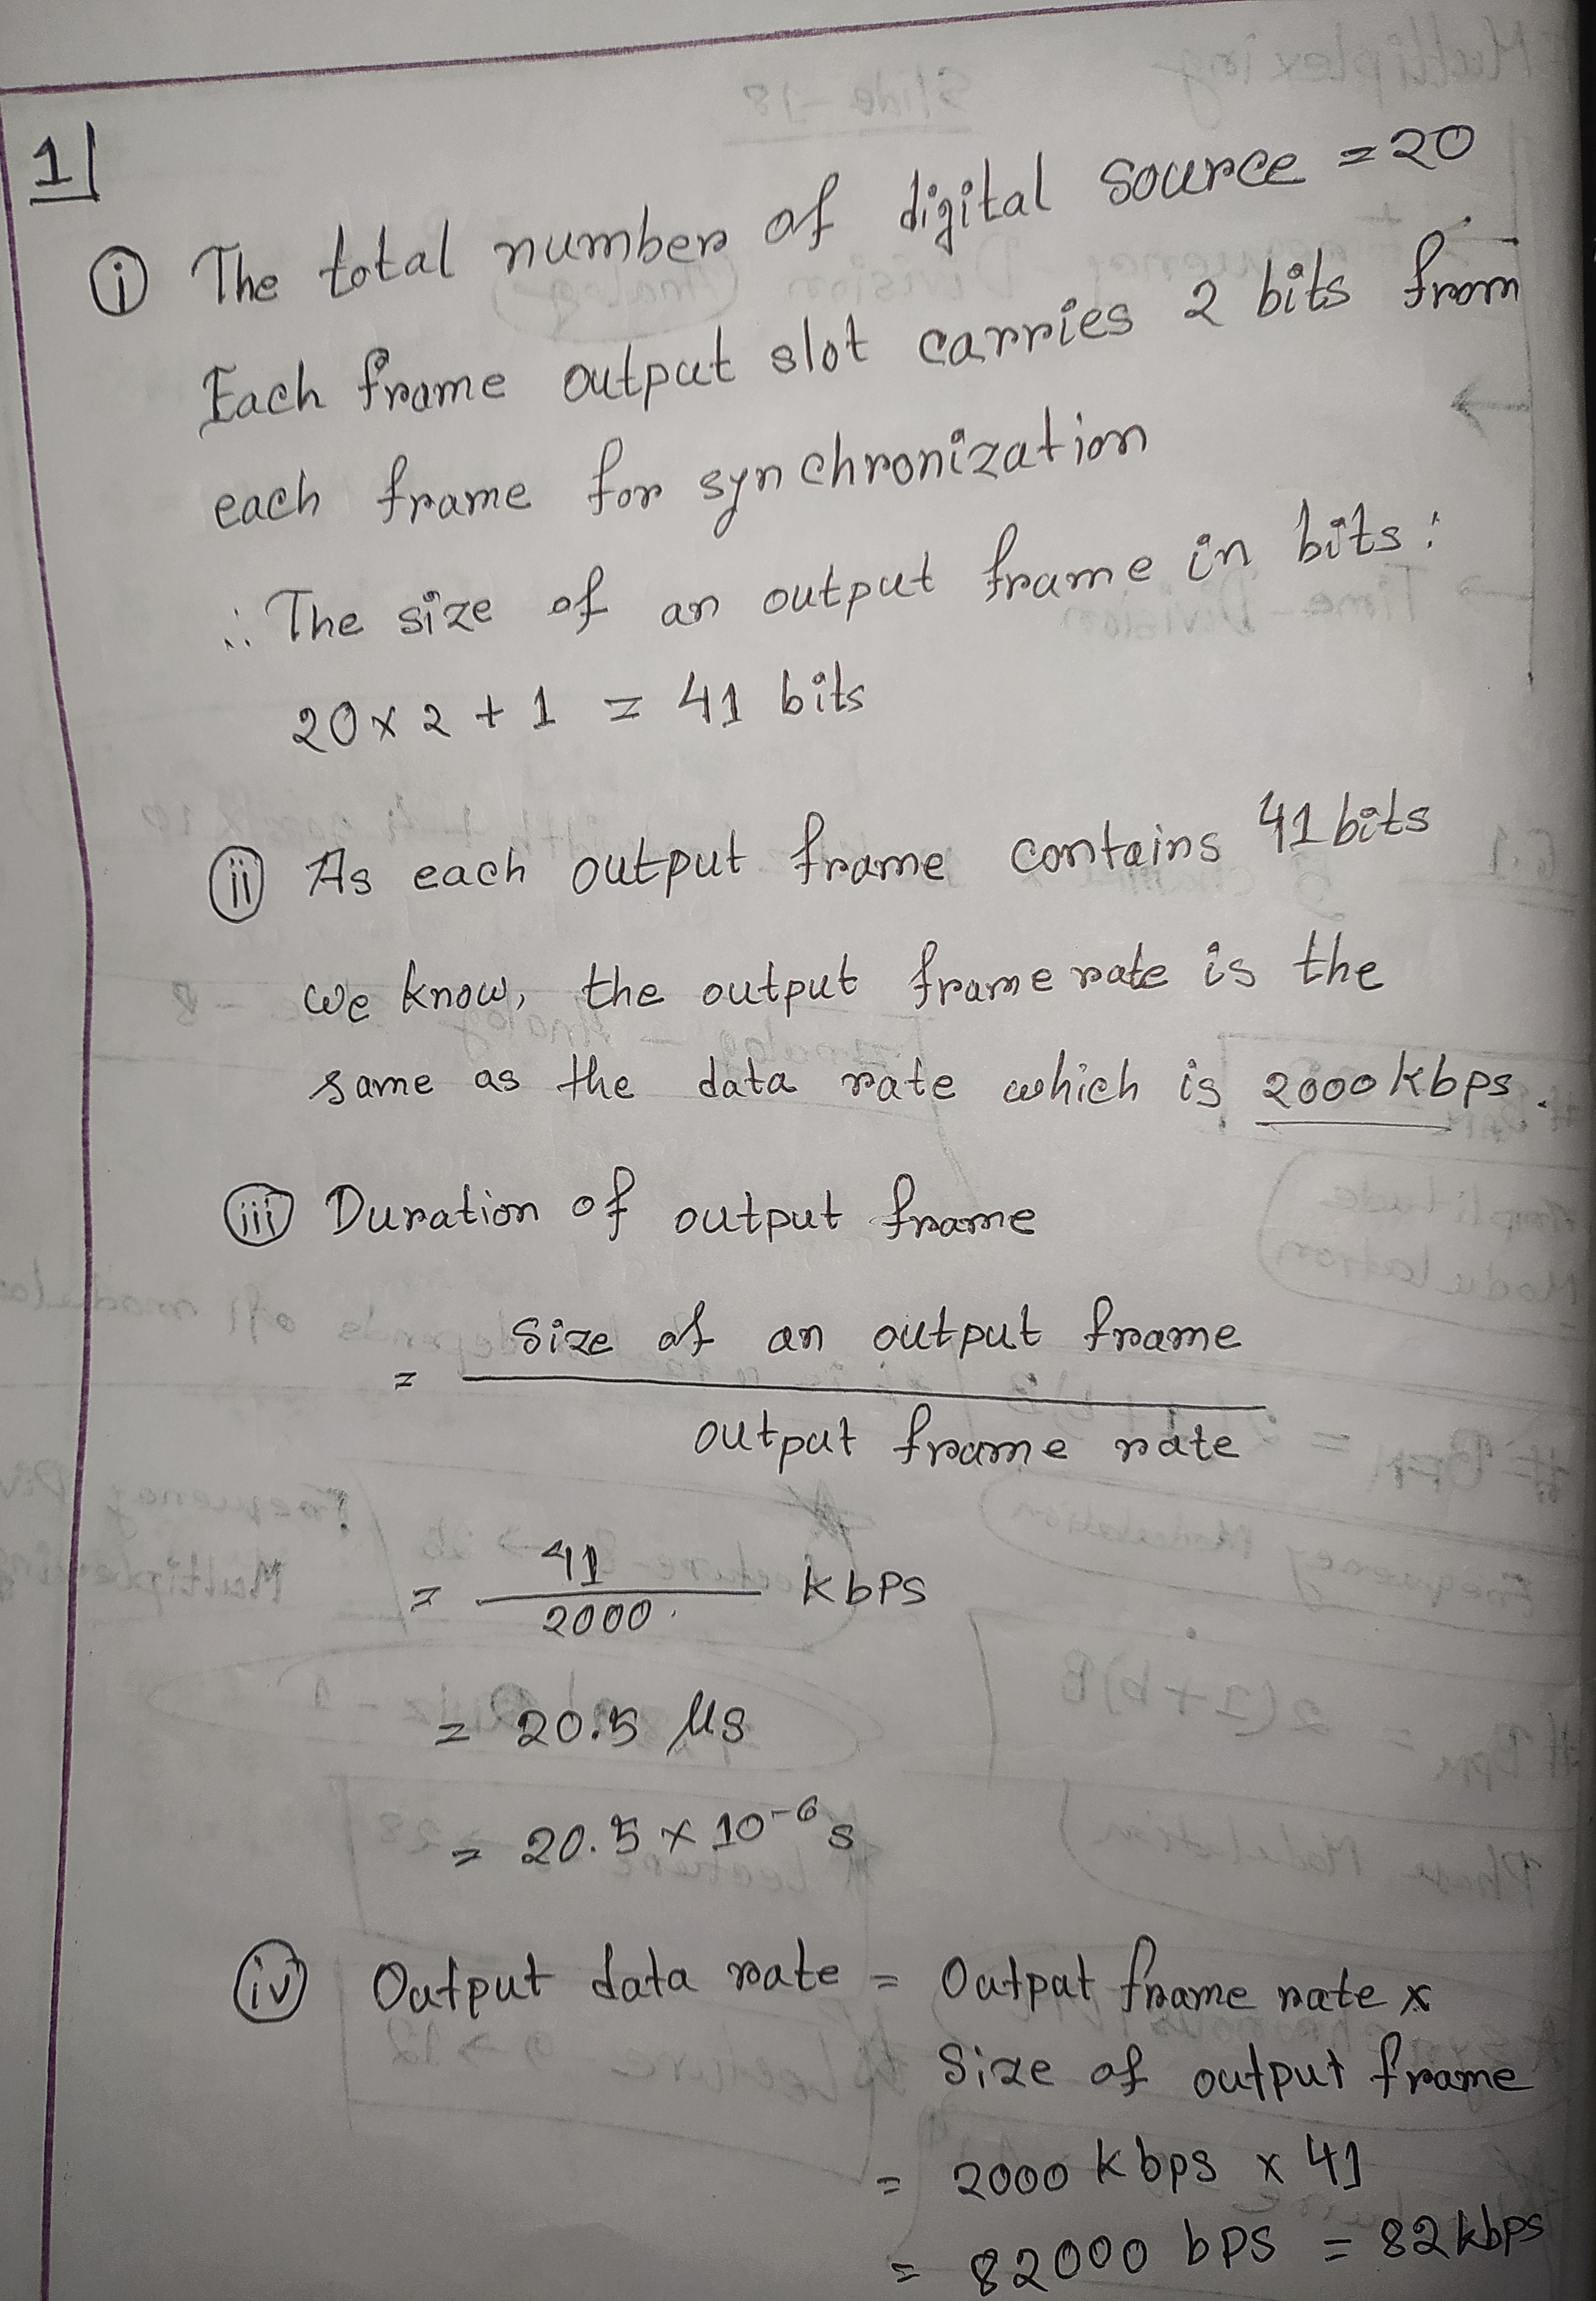 1
i The total number of digital source = 20
Each frame output slot carries 2 bits from
each frame for synchronization
∴ The size of an output frame in bits:
20 x 2 + 1 = 41 bits
ii As each output frame contains 41 bits
we know, the output frame rate is the
same as the data rate which is 2000 kbps.
iii Duration of output frame
= Size of an output frame
output frame rate
= 41
2000 kbps
= 20.5 μs
= 20.5 x 10⁻⁶ s
iv Output data rate = Output frame rate x
Size of output frame
= 2000 kbps x 41
= 82000 bps = 82 kbps